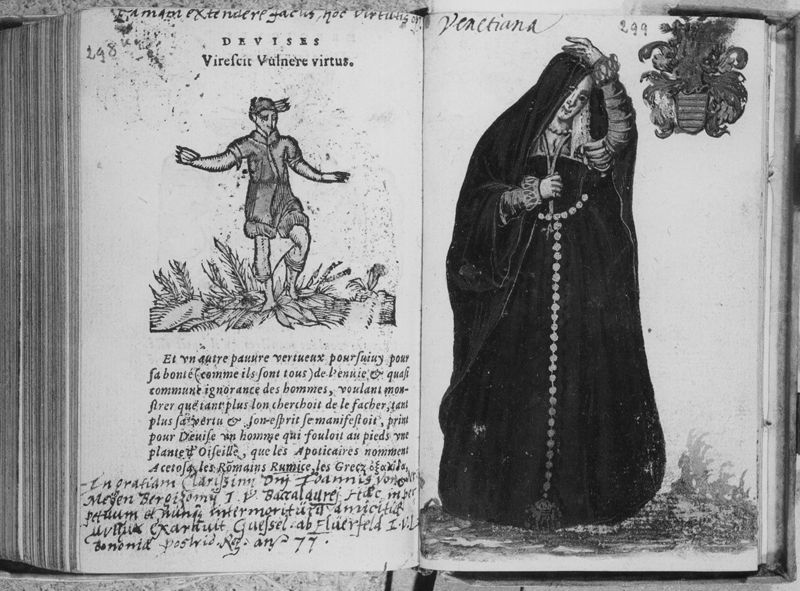 extendere factis, hoc virtutis
298
DEVISES
Virescit Vulnere virtus.
Et vn autre pauure vertueux poursuiuy pour
sa bonté (comme ils sont tous) de l'enuie & quasi
commune ignorance des hommes, voulant mon-
strer que tant plus lon cherchoit de le facher, tant
plus sa vertu & son esprit se manifestoit, print
pour Deuise vn homme qui fouloit au pieds vne
plante d'Oiseille, que les Apoticaires nomment
Acetosa, les Romains Rumice, les Grecz ὀξαλίδα.
In gratiam Clarissimi Dni Joannis von der
I. V. Baccalaurei
amicitiæ
exarauit ab I.V.
Bononiæ postrid. 77.
Venetiana
299